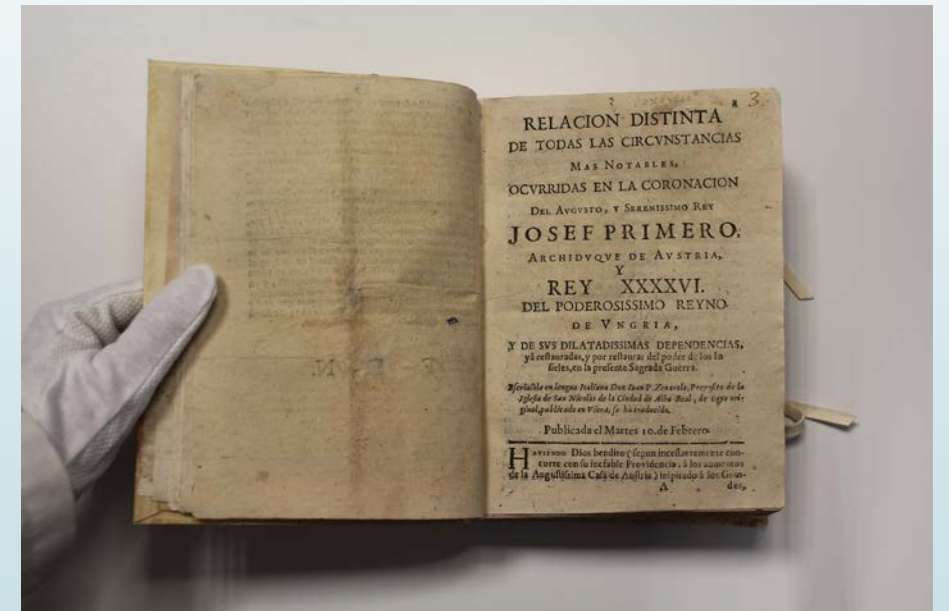 3.
RELACION DISTINTA
DE TODAS LAS CIRCVNSTANCIAS
MAS NOTABLES,
OCVRRIDAS EN LA CORONACION
DEL AVGVSTO, Y SERENISSIMO REY
JOSEF PRIMERO,
ARCHIDVQVE DE AVSTRIA,
Y
REY XXXXVI.
DEL PODEROSISSIMO REYNO
DE VNGRIA,
Y DE SVS DILATADISSIMAS DEPENDENCIAS,
yá restauradas, y por restaurar del poder de los In
fieles, en la presente Sagrada Guerra.
Escriviòla en lengua Italiana Don Iuan P. Zenarola, Preposito de la
Iglesia de San Nicolàs de la Ciudad de Alba-Real, de cuyo ori-
ginal, publicado en Viena, se ha traducido.
Publicada el Martes 10. de Febrero.
HAVIENDO Dios bendito (segun incessantemente con-
curre con su inefable Providencia, à los aumentos
de la Augustissima Casa de Austria) inspirado à los Gran-
A des,